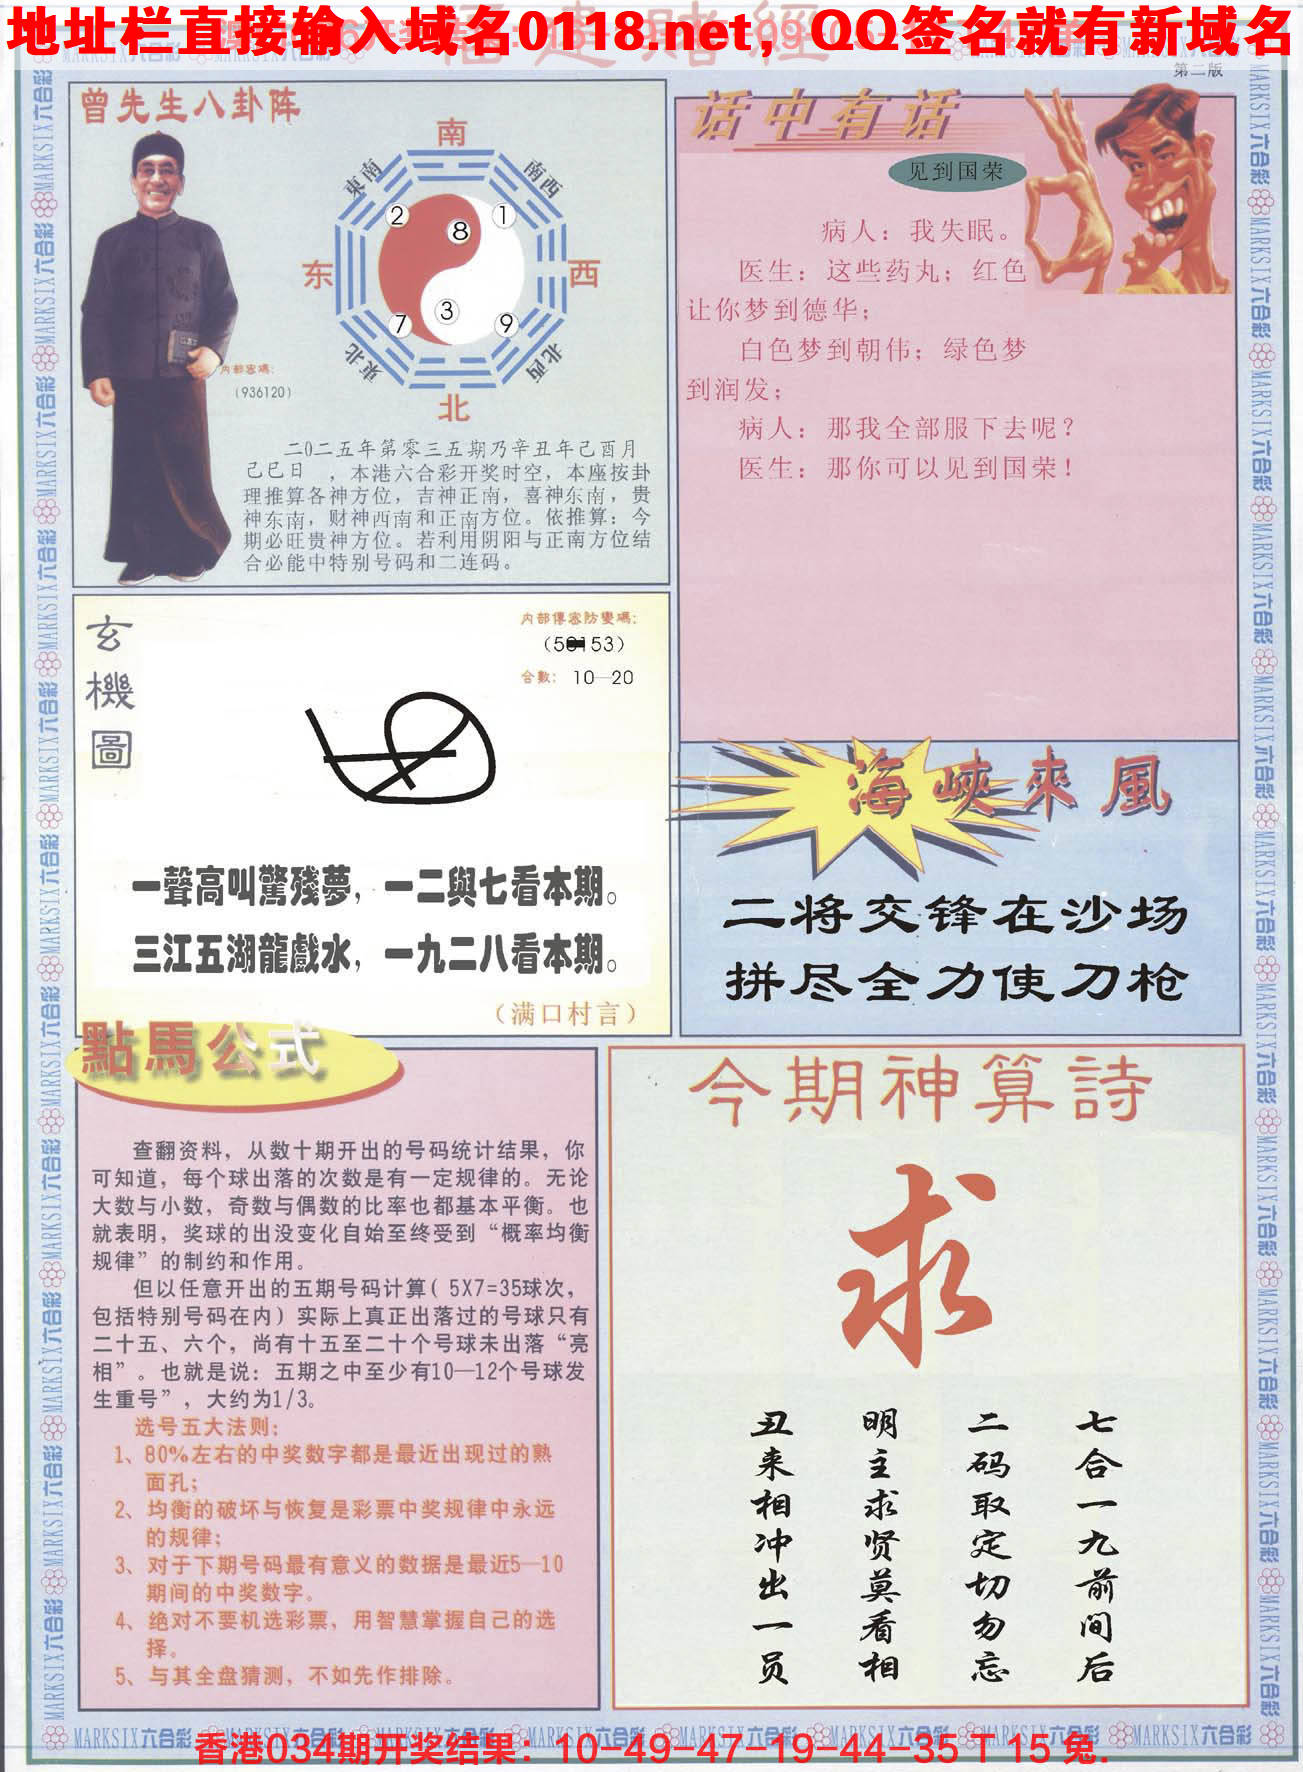 地址栏直接输入域名0118.net，QQ签名就有新域名
福建赌經
第二版
曾先生八卦阵
南
東南
南西
2
1
8
东
西
3
7
9
東北
北西
北
内部密碼：
（936120）
二0二五年第零三五期乃辛丑年己酉月
己巳日 ，本港六合彩开奖时空，本座按卦
理推算各神方位，吉神正南，喜神东南，贵
神东南，财神西南和正南方位。依推算：今
期必旺贵神方位。若利用阴阳与正南方位结
合必能中特别号码和二连码。
话中有话
见到国荣
病人：我失眠。
医生：这些药丸；红色
让你梦到德华；
白色梦到朝伟；绿色梦
到润发；
病人：那我全部服下去呢？
医生：那你可以见到国荣！
玄機圖
内部傳密防變碼：
合數： 10—20
一聲高叫驚殘夢，一二與七看本期。
三江五湖龍戲水，一九二八看本期。
（满口村言）
海峽來風
二将交锋在沙场
拼尽全力使刀枪
點馬公式
查翻资料，从数十期开出的号码统计结果，你
可知道，每个球出落的次数是有一定规律的。无论
大数与小数，奇数与偶数的比率也都基本平衡。也
就表明，奖球的出没变化自始至终受到“概率均衡
规律”的制约和作用。
但以任意开出的五期号码计算（5X7=35球次，
包括特别号码在内）实际上真正出落过的号球只有
二十五、六个，尚有十五至二十个号球未出落“亮
相”。也就是说：五期之中至少有10—12个号球发
生重号”，大约为1/3。
选号五大法则：
1、80%左右的中奖数字都是最近出现过的熟
面孔；
2、均衡的破坏与恢复是彩票中奖规律中永远
的规律；
3、对于下期号码最有意义的数据是最近5—10
期间的中奖数字。
4、绝对不要机选彩票，用智慧掌握自己的选
择。
5、与其全盘猜测，不如先作排除。
今期神算詩
求
七合一九前间后
二码取定切勿忘
明主求贤莫看相
丑来相冲出一员
MARKSIX六合彩
香港034期开奖结果：10-49-47-19-44-35 T 15 兔.